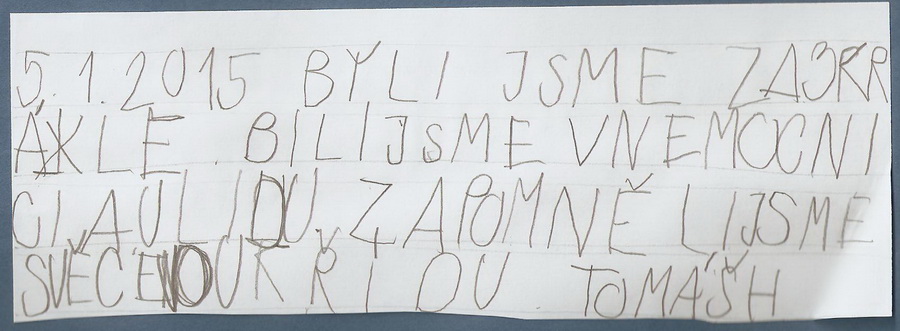 5.1.2015 BYLI JSME ZA3RR
ÁKLE. BILIJSME VNEMOCNI
CIAULIDU. ZAPOMNĚLIJSME
SVĚCENOUK ŘIDU. TOMÁŠH